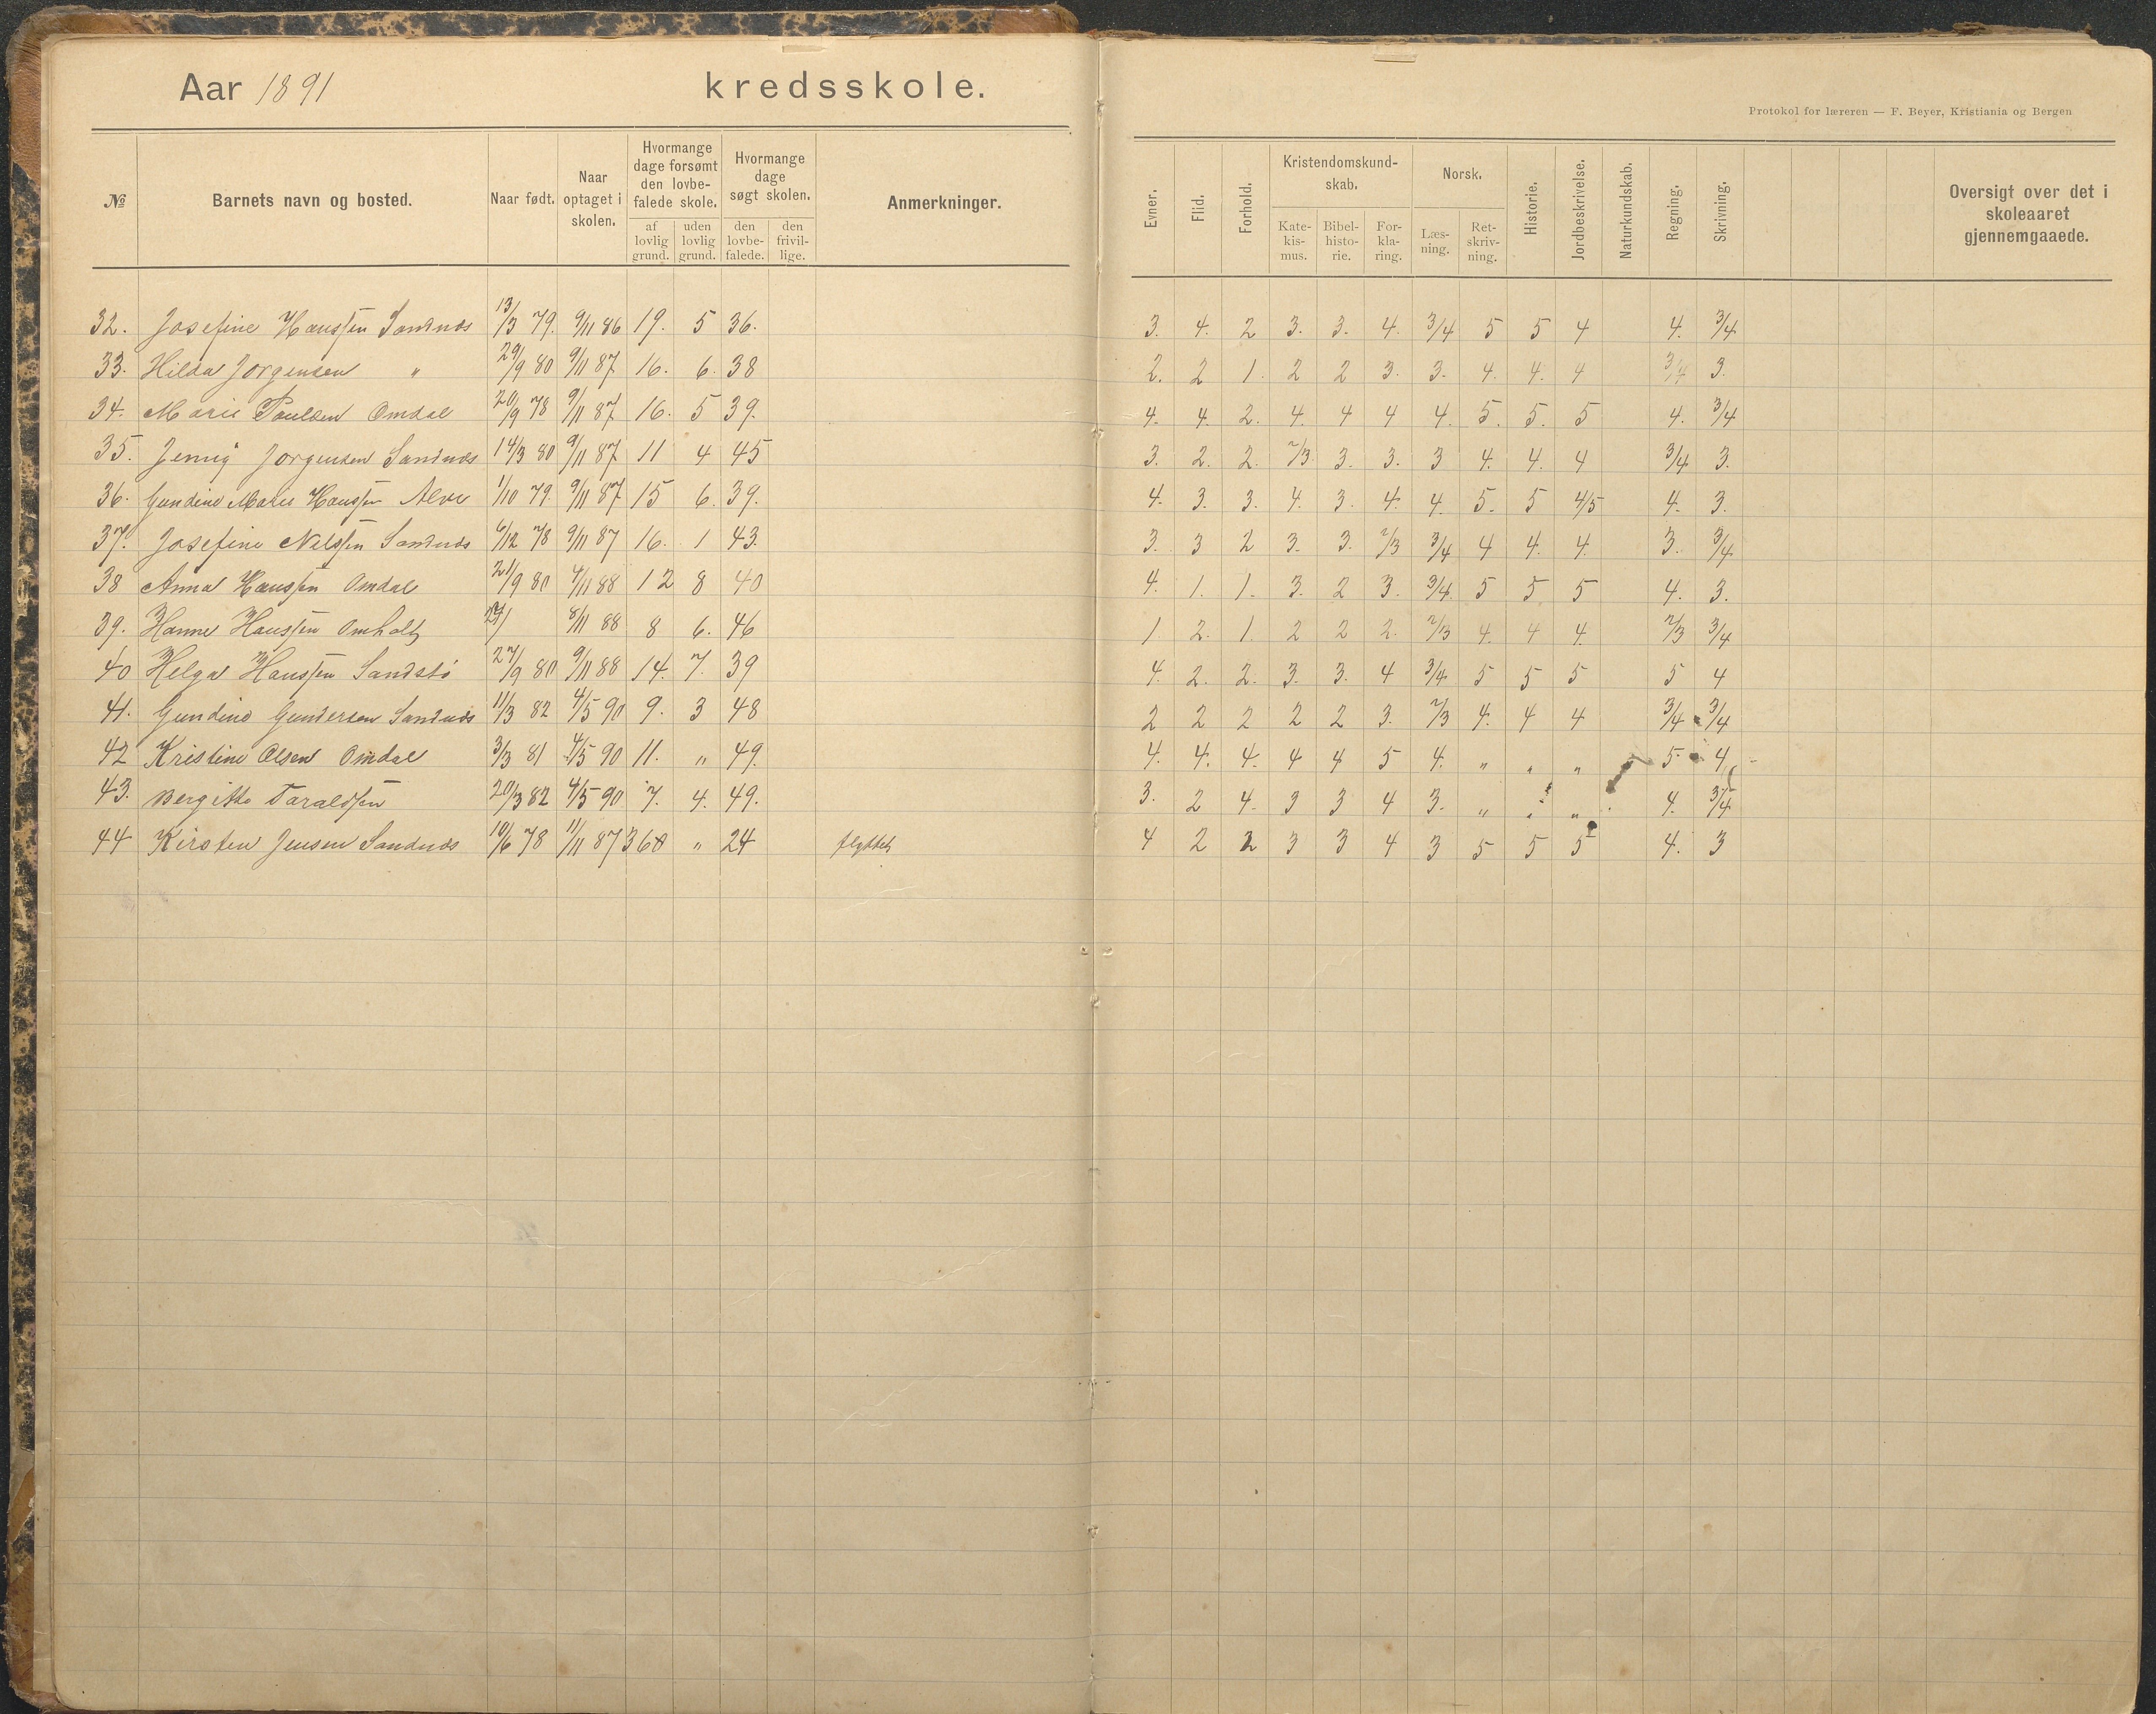 Aar 1891 kredsskole.
Protokol for læreren — F. Beyer, Kristiania og Bergen
№ Barnets navn og bosted. Naar født. Naar optaget i skolen. Hvormange dage forsømt den lovbefalede skole. af lovlig grund. uden lovlig grund. Hvormange dage søgt skolen. den lovbefalede. den frivillige. Anmerkninger. Evner. Flid. Forhold. Kristendomskundskab. Katekismus. Bibelhistorie. Forklaring. Norsk. Læsning. Retskrivning. Historie. Jordbeskrivelse. Naturkundskab. Regning. Skrivning. Oversigt over det i skoleaaret gjennemgaaede.
32. Josefine Hanssen Sandnes 13/3 79. 9/11 86 19. 5 36. 3. 4. 2 3. 3. 4. 3/4 5 5 4 4. 3/4
33. Hilda Jorgensen " 29/9 80 9/11 87 16. 6. 38 2. 2 1. 2 2 3. 3. 4. 4. 4 3/4 3.
34. Marie Paulsen Omdal 20/9 78 9/11 87 16. 5 39. 4. 4. 2. 4. 4 4 4. 5. 5. 5 4. 3/4
35. Jenny Jorgensen Sandnes 14/3 80 9/11 87 11 4 45 3. 2. 2. 2/3. 3. 3. 3 4. 4. 4 3/4 3.
36. Gundine Marie Hanssen Alve 1/10 79. 9/11 87 15 6. 39. 4. 3. 3. 4. 3. 4. 4. 5. 5 4/5 4. 3.
37. Josefine Nilssen Sandnes 6/12 78 9/11 87 16. 1 43. 3. 3 2 3. 3. 2/3 3/4 4 4. 4. 3. 3/4
38 Anna Hanssen Omdal 21/9 80 4/11 88 12 8 40 4. 1. 1. 3. 2 3. 3/4. 5 5. 5 4. 3.
39. Hanne Hanssen Omholt 8/11 88 8 6. 46 1. 2. 1. 2 2 2. 2/3 4. 4 4. 2/3 3/4
40 Helga Hanssen Sandstö 27/9 80 9/11 88 14. 7. 39 4. 2. 2. 3. 3. 4 3/4 5 5 5 5 4
41. Gundine Gundersen Sandnes 11/3 82 4/5 90 9. 3 48 2 2 2 2 2 3. 2/3 4. 4 4 3/4 3/4
42 Kristine Olsen Omdal 3/3 81 4/5 90 11. " 49. 4. 4. 4. 4 4 5 4. " " " 5 4
43. Bergitte Taraldsen 20/3 82 4/5 90 7. 4. 49. 3. 2 4. 3 3 4 3. " " " 4. 3/4
44 Kirsten Jensen Sandnes 10/6 78 11/11 87 36 " 24 flyttet 4 2 2 3 3 4 3 5 5 5 4. 3